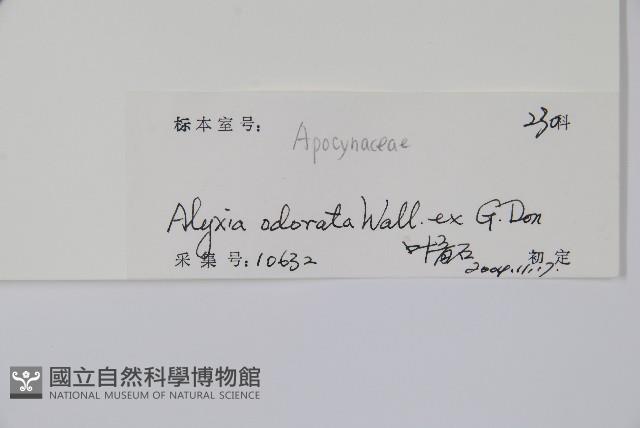 标本室号:
230科
Apocynaceae
Alyxia odorata Wall. ex G. Don
采集号: 10632
叶育石 初定
2004.11.17.
國立自然科學博物館
NATIONAL MUSEUM OF NATURAL SCIENCE